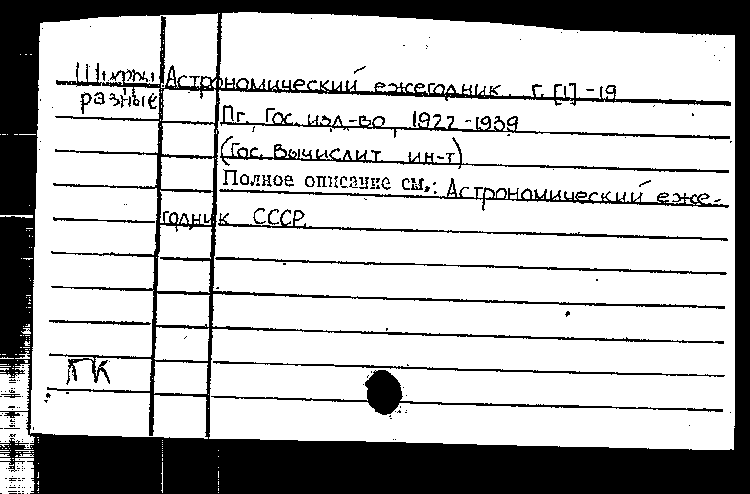 Шифры Астрономический ежегодник. г. [1]-19
разные
Пг., Гос. изд-во, 1922-1939
(Гос. вычислит ин-т)
Полное описание см.: Астрономический еже-
годник СССР.
ГК